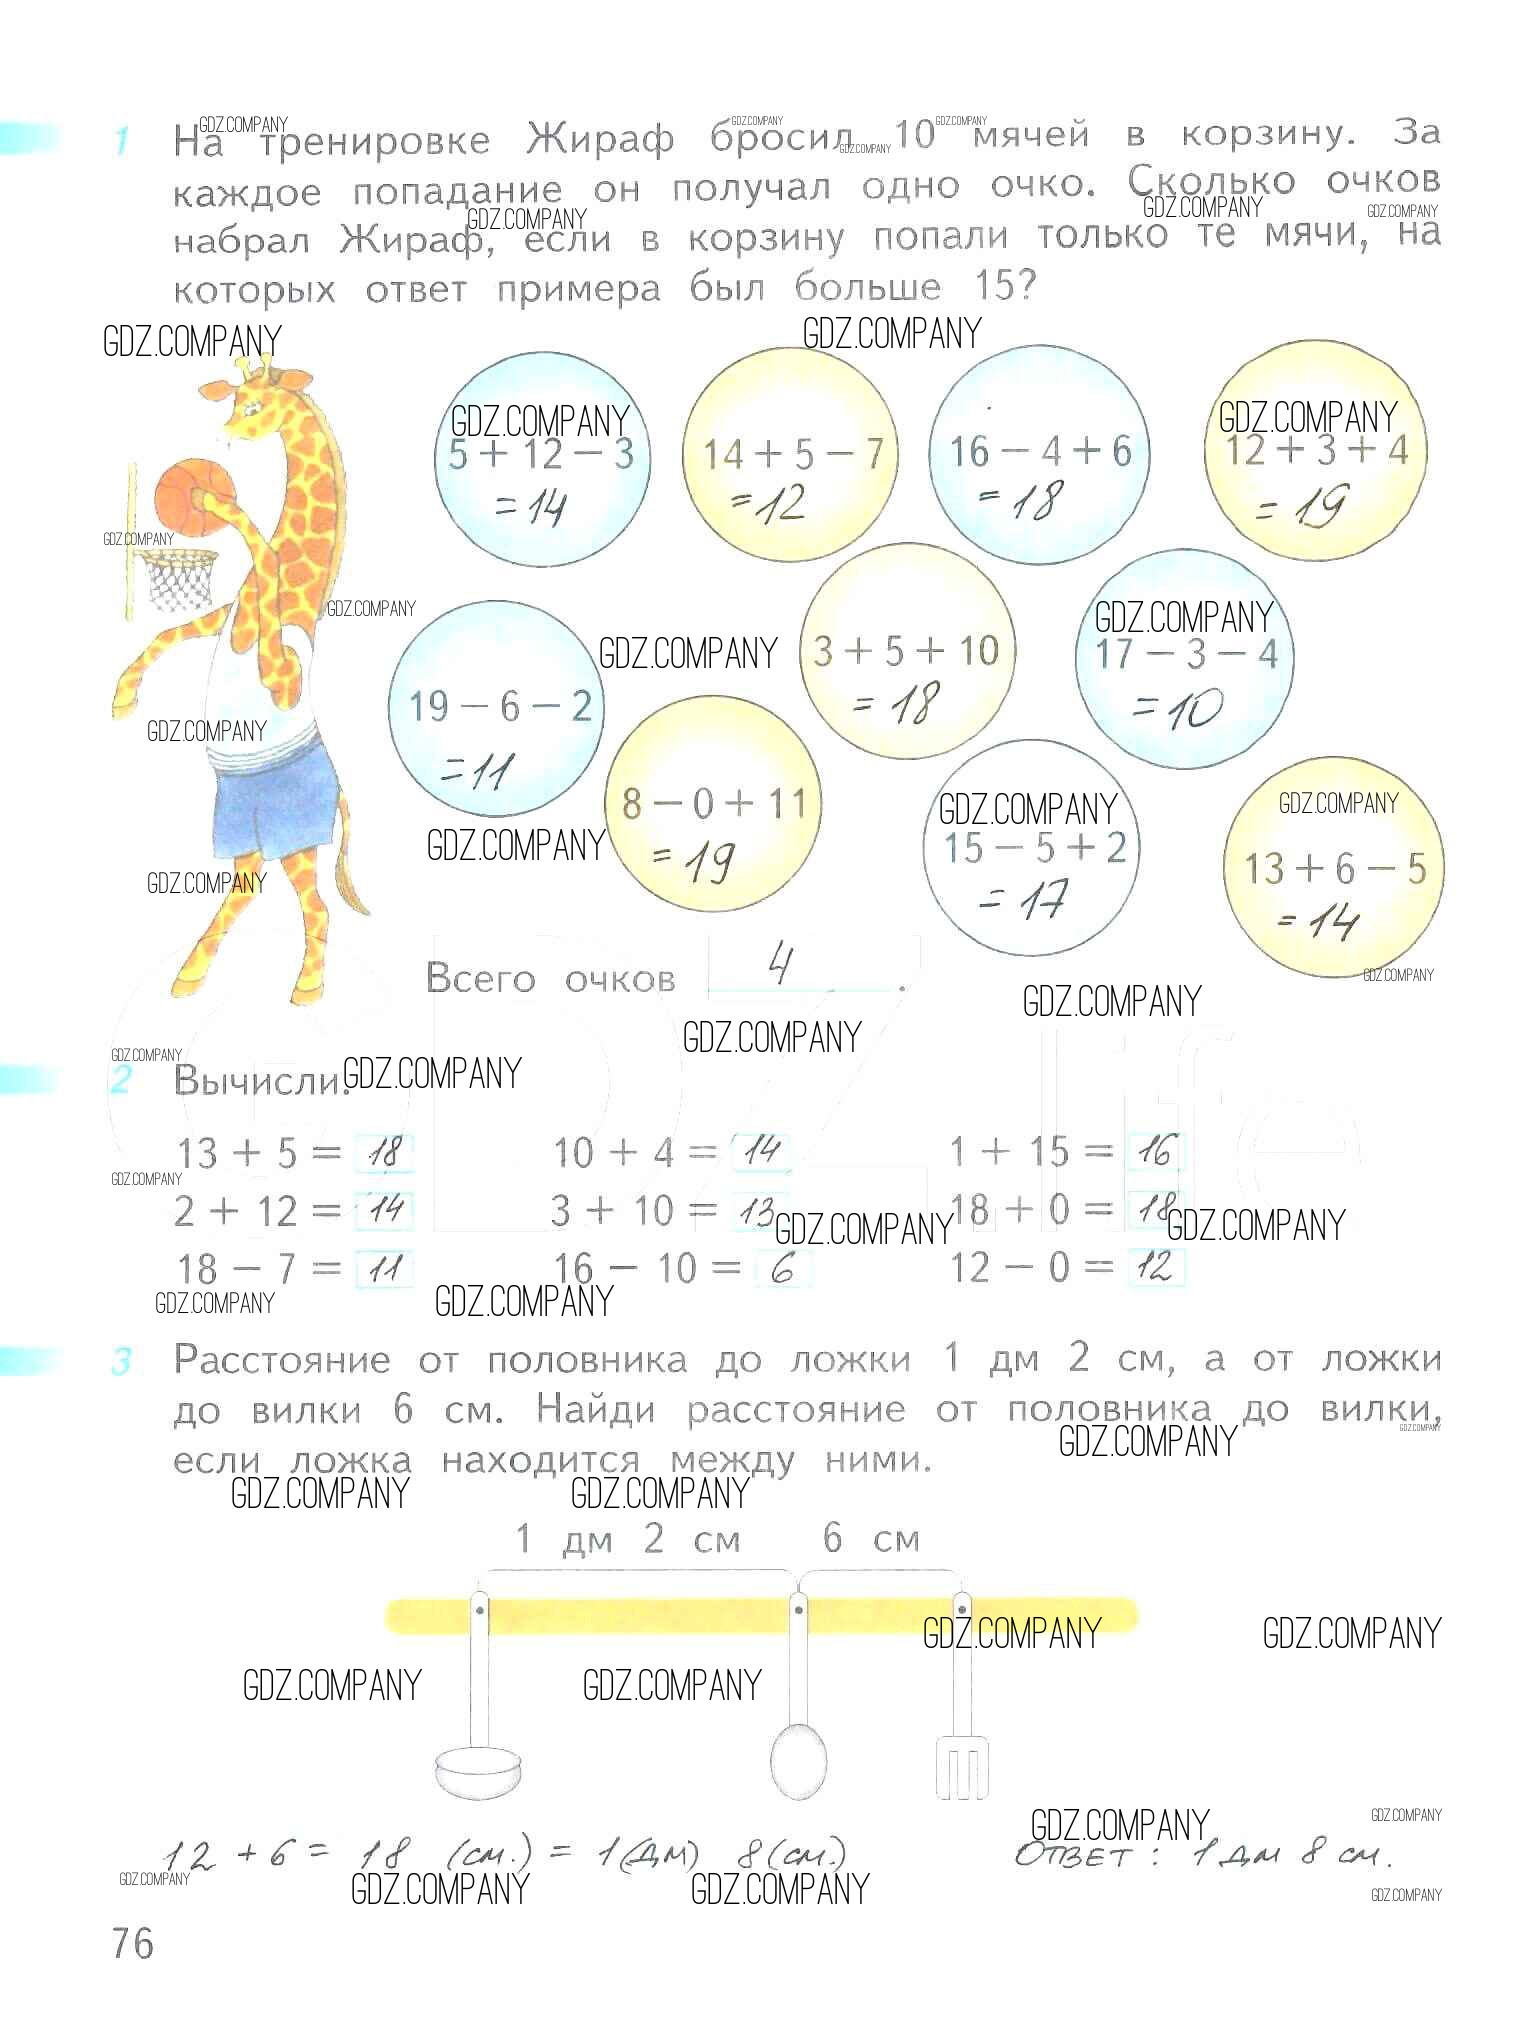 1 На тренировке Жираф бросил 10 мячей в корзину. За
каждое попадание он получал одно очко. Сколько очков
набрал Жираф, если в корзину попали только те мячи, на
которых ответ примера был больше 15?
GDZ.COMPANY
5 + 12 − 3
= 14
14 + 5 − 7
= 12
16 − 4 + 6
= 18
12 + 3 + 4
= 19
19 − 6 − 2
= 11
3 + 5 + 10
= 18
17 − 3 − 4
= 10
8 − 0 + 11
= 19
15 − 5 + 2
= 17
13 + 6 − 5
= 14
Всего очков 4.
2 Вычисли.
13 + 5 = 18 10 + 4 = 14 1 + 15 = 16
2 + 12 = 14 3 + 10 = 13 18 + 0 = 18
18 − 7 = 11 16 − 10 = 6 12 − 0 = 12
3 Расстояние от половника до ложки 1 дм 2 см, а от ложки
до вилки 6 см. Найди расстояние от половника до вилки,
если ложка находится между ними.
1 дм 2 см 6 см
12 + 6 = 18 (см.) = 1 (дм) 8 (см.) Ответ: 1 дм 8 см.
76